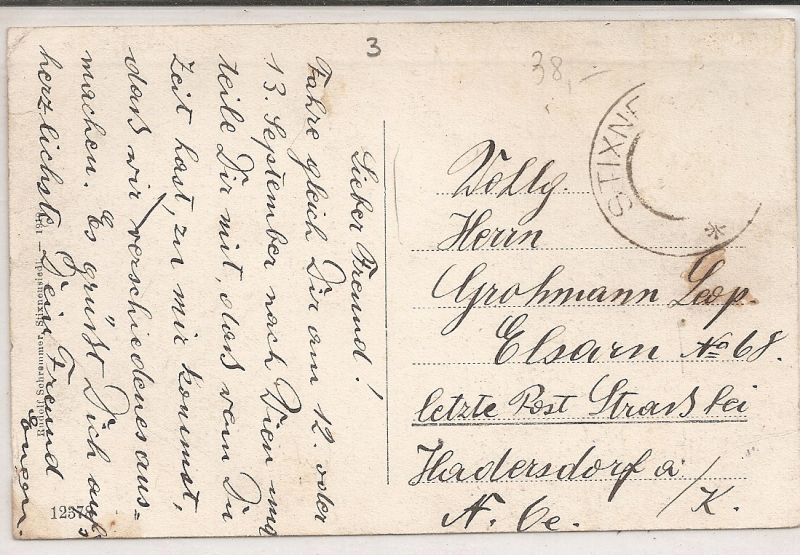 3
38,–
STIXNE
Lieber Freund!
Fahre gleich Dir am 12. oder
13. September nach Wien und
teile Dir mit, daß wenn Du
Zeit hast, zu mir kommst,
daß wir verschiedenes aus-
machen. Es grüßt Dich aufs
herzlichste Dein Freund
Wohlg.
Herrn
Grohmann Leop.
Elsarn No 68.
letzte Post Straß bei
Hadersdorf a/K.
N. Oe.
Rudolf Schrammer, Stixneusiedl. — 1918
1237